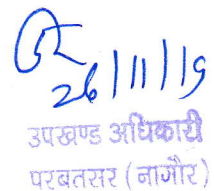 26/11/19
उपखण्ड अधिकारी
परबतसर (नागौर)